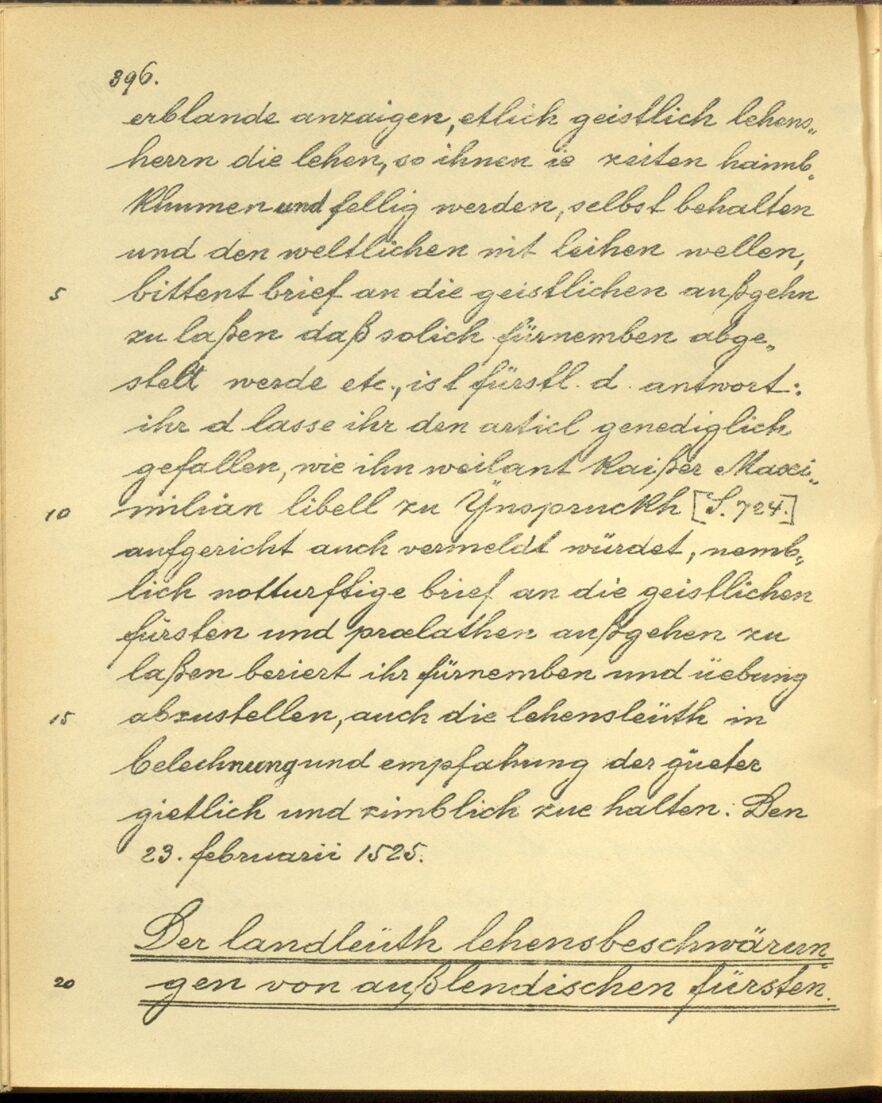 396.
erblande anzaigen, etlich geistlich lehens„
herrn die lehen, so ihnen ie zeiten haimb„
khumen und fellig werden, selbst behalten
und den weltlichen nit leihen wellen,
5 bittent brief an die geistlichen außgehn
zu laßen daß solich fürnemben abge„
stelt werde etc., ist fürstl. d. antwort:
ihr d lasse ihr den articl genediglich
gefallen, wie ihn weilant Kaißer Maxi„
10 milian libell zu Ynspruckh [S. 724.]
aufgericht auch vermeldt würdet, nemb„
lich notturftige brief an die geistlichen
fürsten und prælathen außgehen zu
laßen beriert ihr fürnemben und üebung
15 abzustellen, auch die lehensleüth in
belechnung und empfahung der güeter
gietlich und zimblich zue halten. Den
23. februarii 1525.
Der landleüth lehensbeschwärun„
20 gen von außlendischen fürsten.